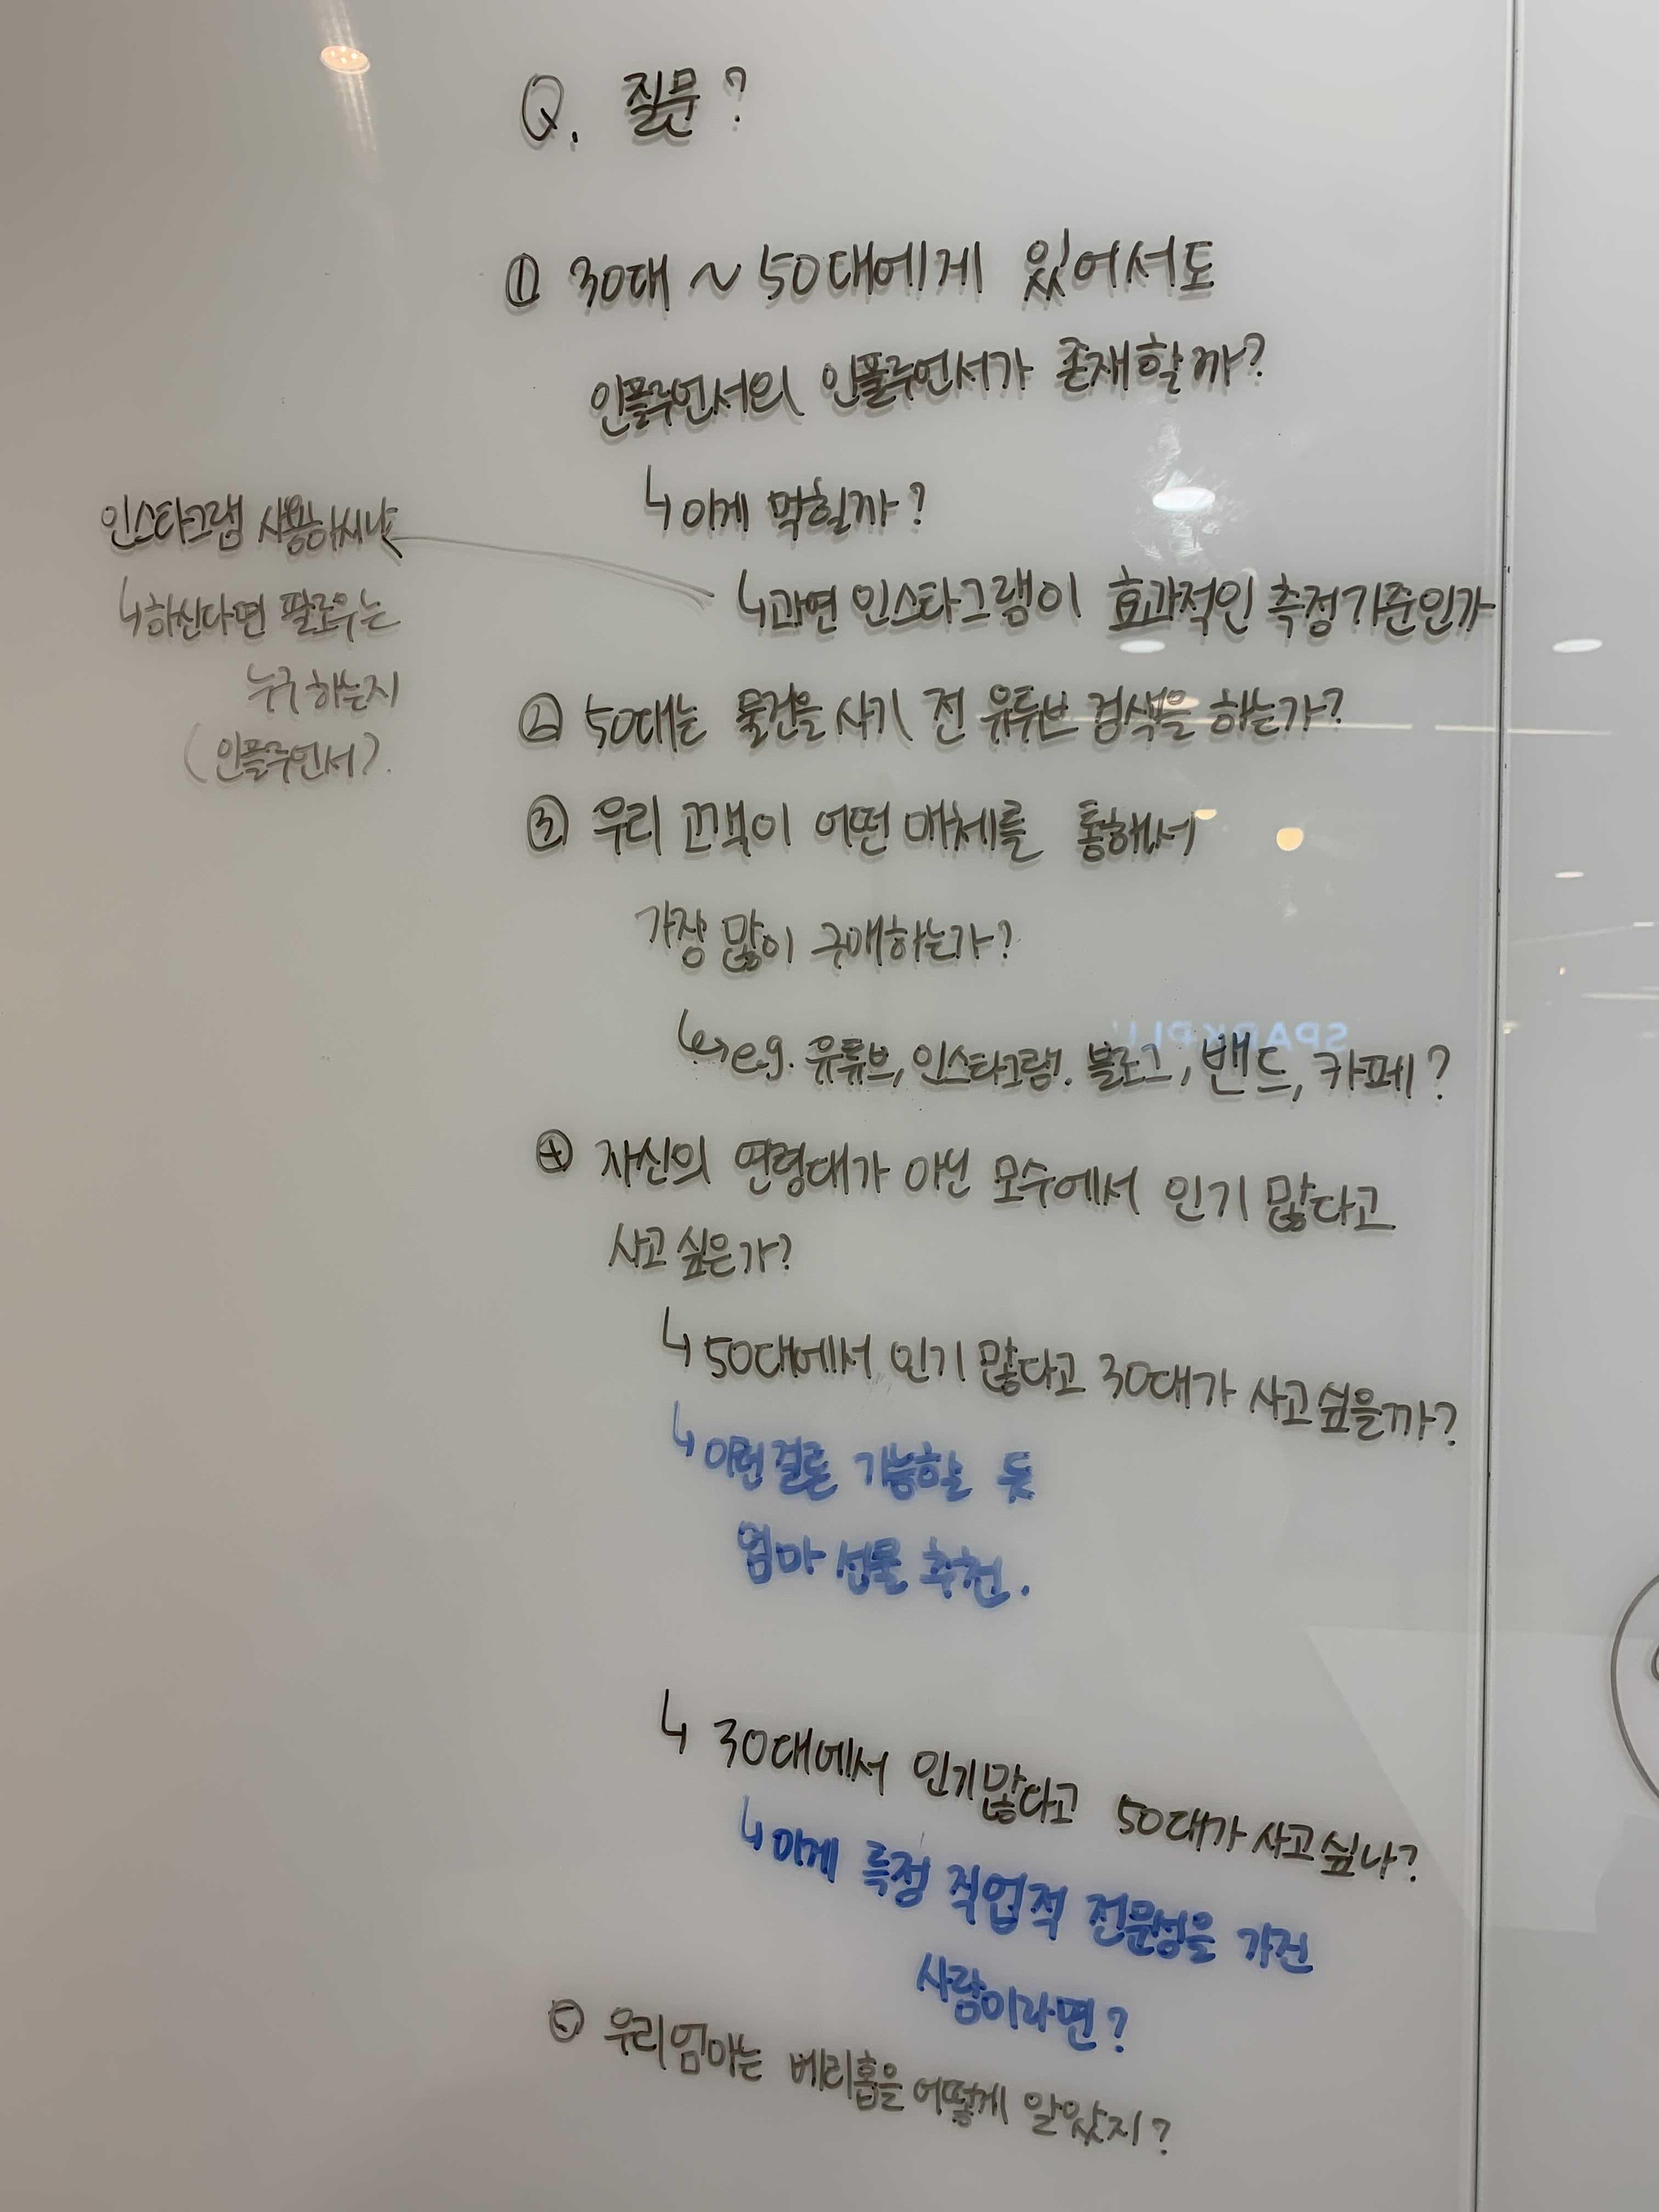 Q. 질문?
① 30대 ~ 50대에게 있어서도
인플루언서의 인플루언서가 존재할까?
↳ 이게 먹힐까?
↳ 과연 인스타그램이 효과적인 측정기준인가
인스타그램 사용하시냐
↳ 하신다면 팔로우는
누구 하는지
(인플루언서?)
② 50대는 물건을 사기 전 유튜브 검색을 하는가?
③ 우리 고객이 어떤 매체를 통해서
가장 많이 구매하는가?
↳ e.g. 유튜브, 인스타그램, 블로그, 밴드, 카페?
④ 자신의 연령대가 아닌 모수에서 인기 많다고
사고 싶은가?
↳ 50대에서 인기 많다고 30대가 사고싶을까?
↳ 이런결론 가능할 듯
엄마 선물 추천.
↳ 30대에서 인기많다고 50대가 사고싶나?
↳ 이게 특정 직업적 전문성을 가진
사람이라면?
⑤ 우리엄마는 베리홉을 어떻게 알았지?